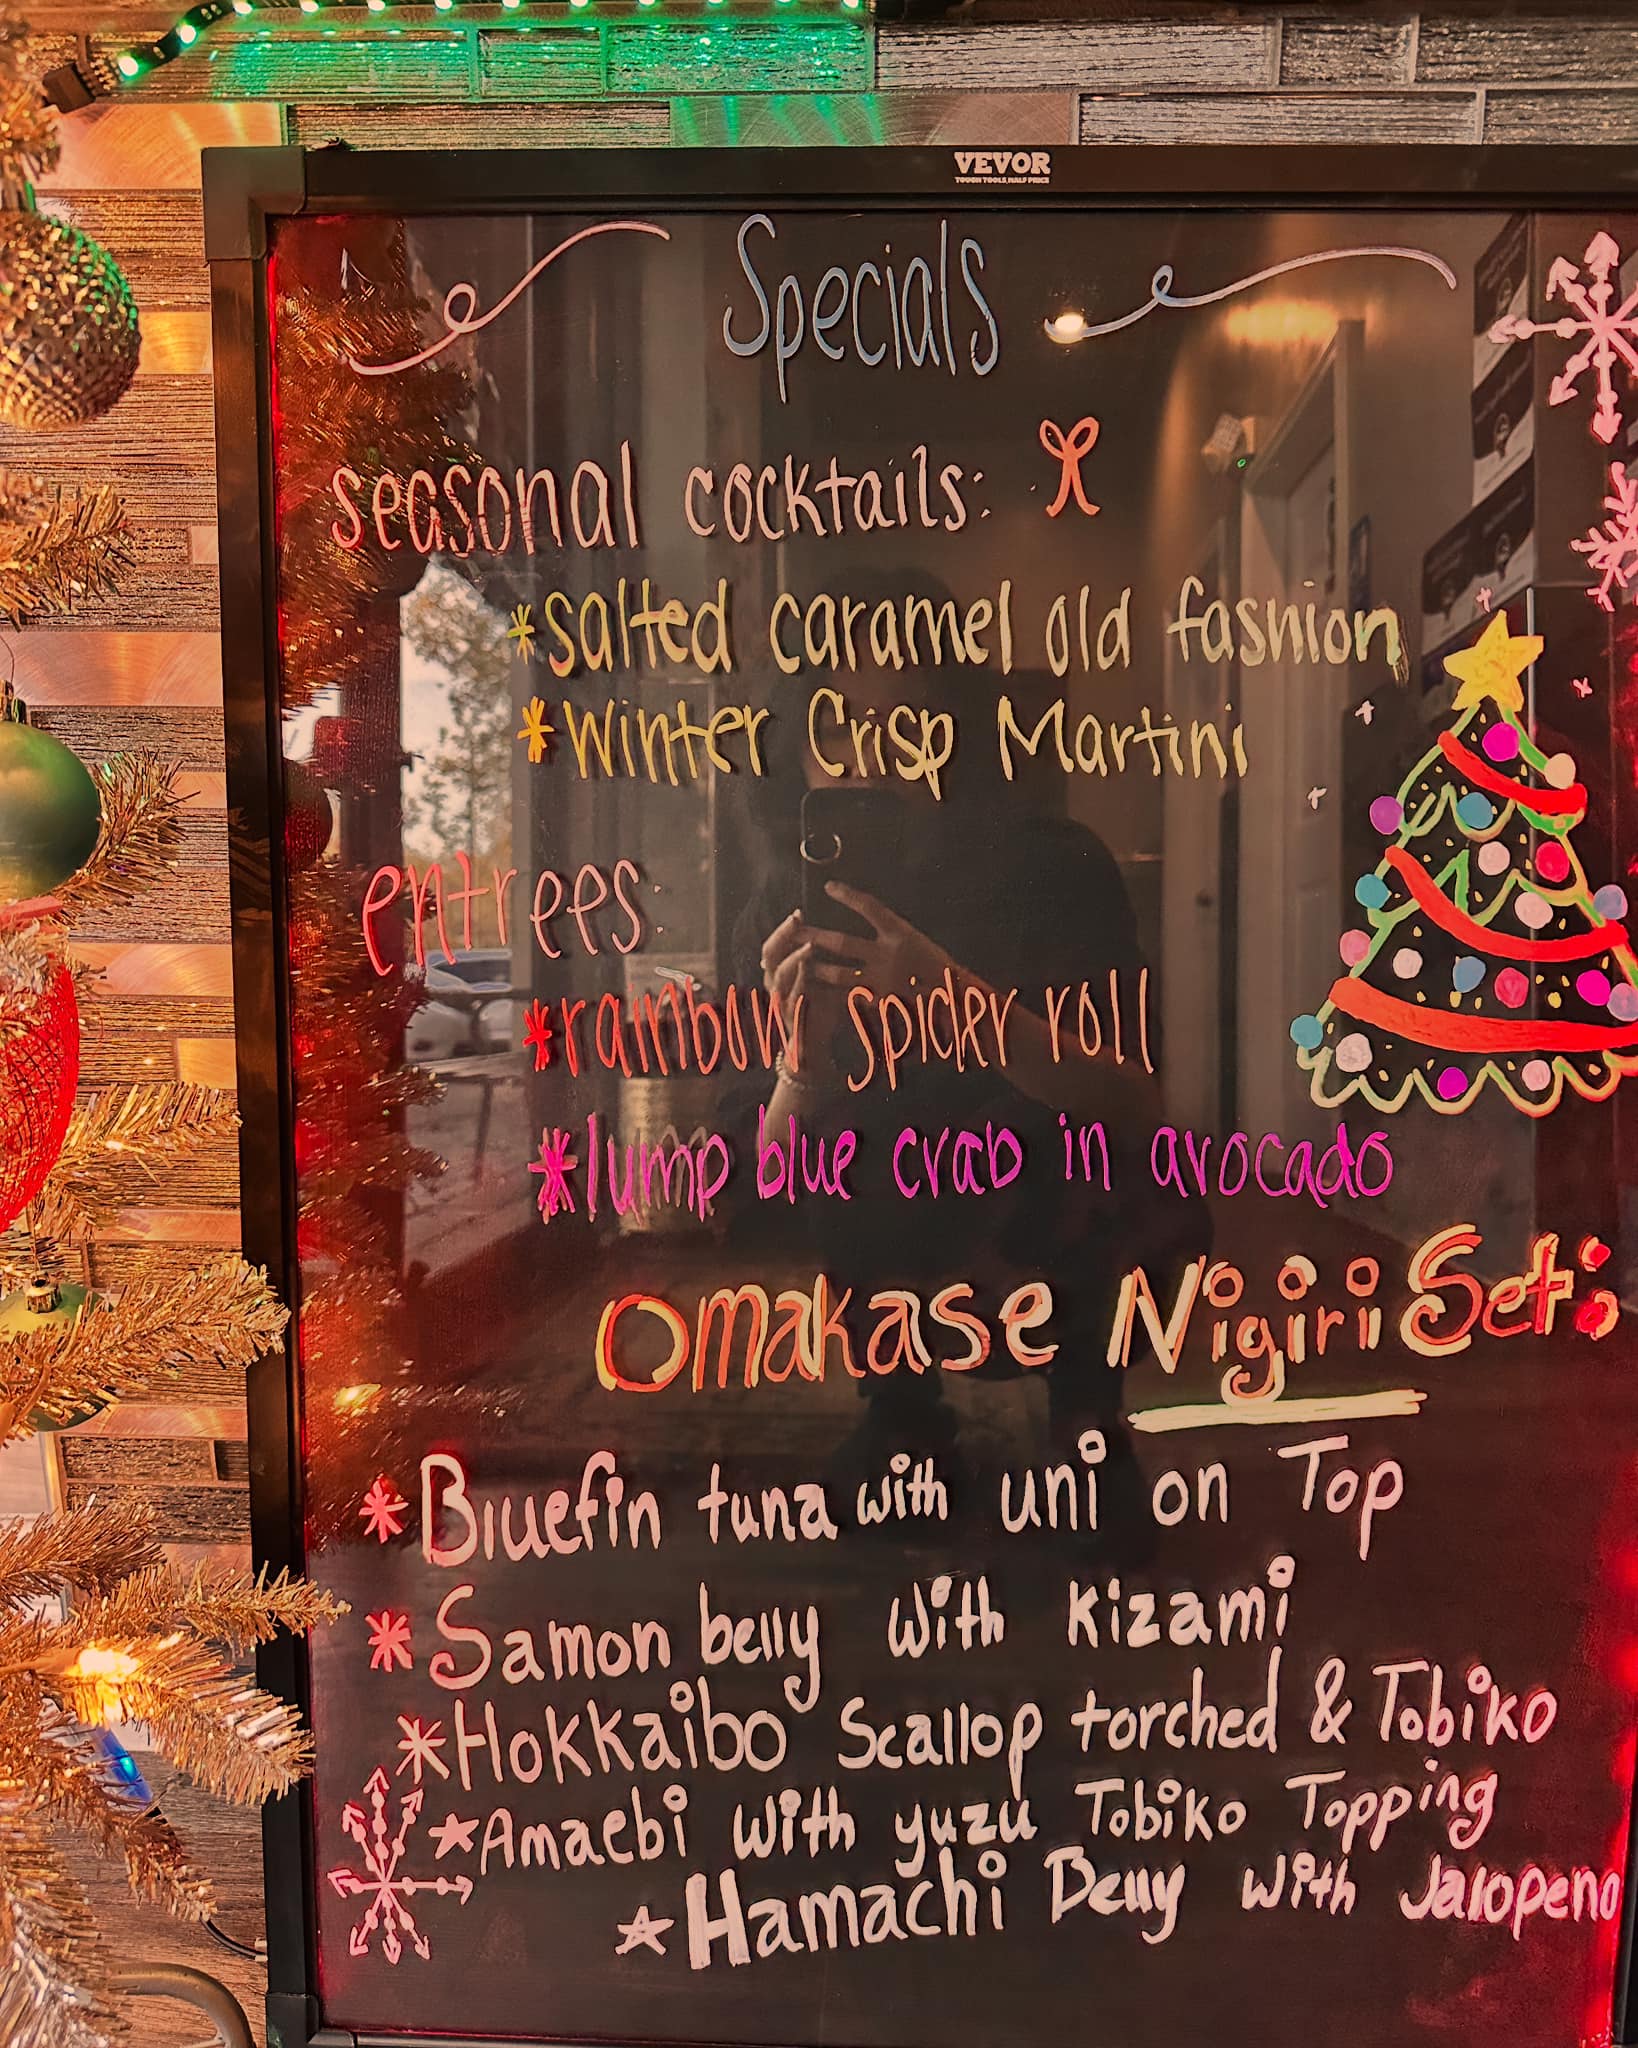 VEVOR
TOUGH TOOLS, HALF PRICE
Specials
seasonal cocktails:
*salted caramel old fashion
*Winter Crisp Martini
entrees:
*rainbow spider roll
*lump blue crab in avocado
Omakase Nigirii Set:
*Bluefin tuna with uni on Top
*Samon belly with Kizami
*Hokkaibo Scallop torched & Tobiko
*Amaebi with yuzu Tobiko Topping
*Hamachi Belly with Jalopeno